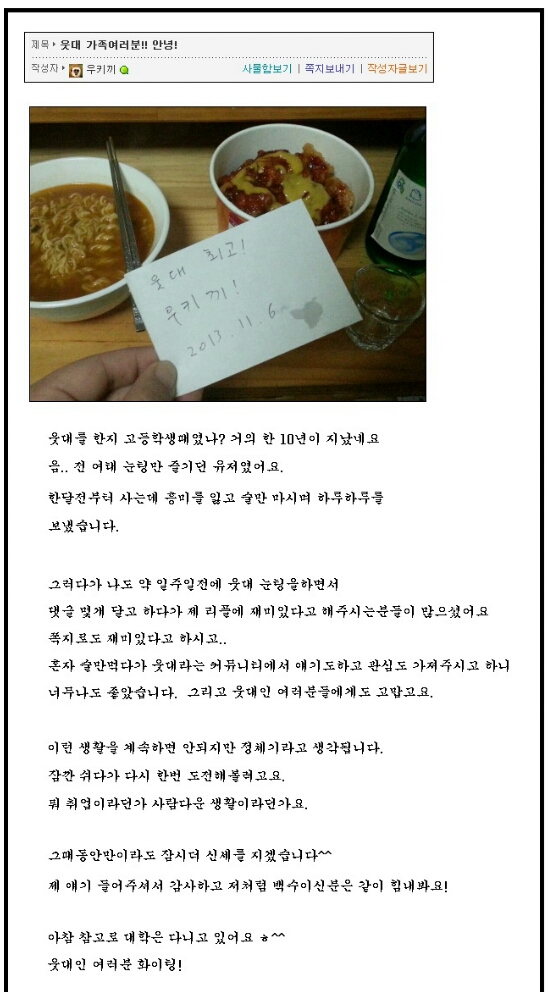 제목 ▸ 웃대 가족여러분!! 안녕!
작성자 ▸ 우키끼 사물함보기 | 쪽지보내기 | 작성자글보기
웃대 최고!
우키끼!
2013.11.6
웃대를 한지 고등학생때였나? 거의 한 10년이 지났네요
음.. 전 여태 눈팅만 즐기던 유저였어요.
한달전부터 사는데 흥미를 잃고 술만 마시며 하루하루를
보냈습니다.
그러다가 나도 약 일주일전에 웃대 눈팅을하면서
댓글 몇개 달고 하다가 제 리플에 재미있다고 해주시는분들이 많으셨어요
쪽지로도 재미있다고 하시고..
혼자 술만먹다가 웃대라는 커뮤니티에서 얘기도하고 관심도 가져주시고 하니
너무나도 좋았습니다. 그리고 웃대인 여러분들에게도 고맙고요.
이런 생활을 계속하면 안되지만 정체기라고 생각됩니다.
잠깐 쉬다가 다시 한번 도전해볼려고요.
뭐 취업이라던가 사람다운 생활이라던가요.
그때동안만이라도 잠시더 신세를 지겠습니다^^
제 얘기 들어주셔서 감사하고 저처럼 백수이신분은 같이 힘내봐요!
아참 참고로 대학은 다니고 있어요 ㅎ^^
웃대인 여러분 화이팅!